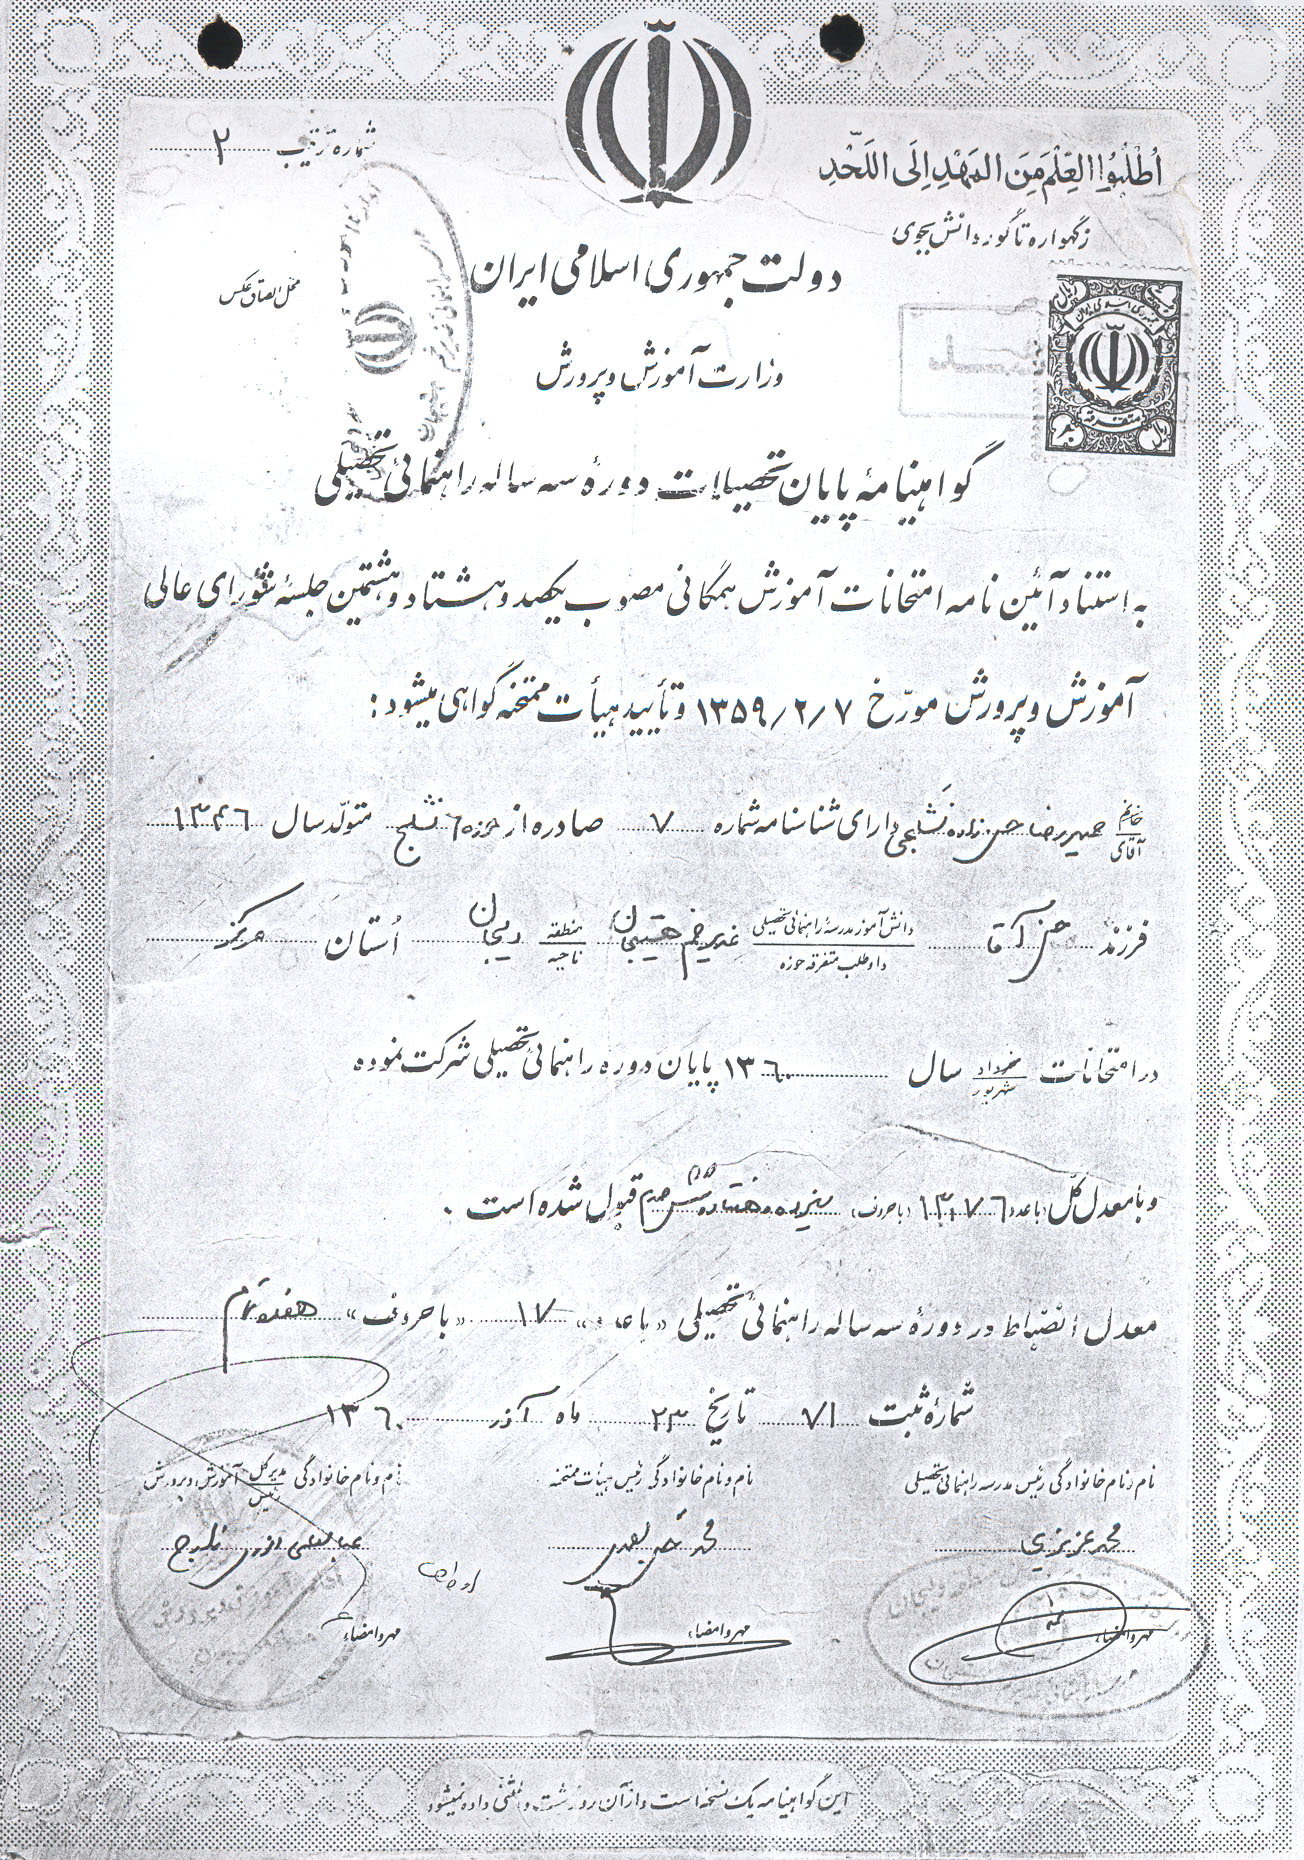 شماره ترتیب ۲
اُطْلُبُوا العِلْمَ مِنَ المَهْدِ اِلَی اللَّحْدِ
زگهواره تا گور دانش بجوی
دولت جمهوری اسلامی ایران
محل الصاق عکس
وزارت آموزش و پرورش
گواهینامهٔ پایان تحصیلات دورهٔ سه ساله راهنمائی تحصیلی
به استناد آئین نامه امتحانات آموزش همگانی مصوب یکصد و هشتاد و هشتمین جلسهٔ شورای عالی
آموزش و پرورش مورّخ ۱۳۵۹/۲/۷ و تأیید هیأت ممتحنه گواهی میشود:
خانم آقای حمیدرضا حسن زاده نشلجی دارای شناسنامه شماره ۷ صادره از حوزه ۶ نشلج متولّد سال ۱۳۴۶
فرزند حسن آقا دانش آموز مدرسهٔ راهنمائی تحصیلی داوطلب متفرقه حوزه غدیرخم حسیجان منطقه ناحیه دلیجان اُستان مرکزی
در امتحانات خرداد شهریور سال ۱۳۶۰ پایان دوره راهنمائی تحصیلی شرکت نموده
و با معدل کلّ (با عدد) ۱۳/۷۶ (با حروف) سیزده و هفتاد و شش صدم قبول شده است .
معدل انضباط در دورهٔ سه ساله راهنمائی تحصیلی «با عدد» ۱۷ «با حروف» هفده تمام
شمارهٔ ثبت ۷۱ تاریخ ۲۳ ماه آذر ۱۳۶۰
نام و نام خانوادگی رئیس مدرسه راهنمائی تحصیلی
نام و نام خانوادگی رئیس هیأت ممتحنه
نام و نام خانوادگی مدیر کل رئیس آموزش و پرورش
محمد عزیزی
محمد
مهر و امضاء
مهر و امضاء
مهر و امضاء
این گواهینامه یک نسخه است و از آن رونوشت و مثنی داده نمیشود